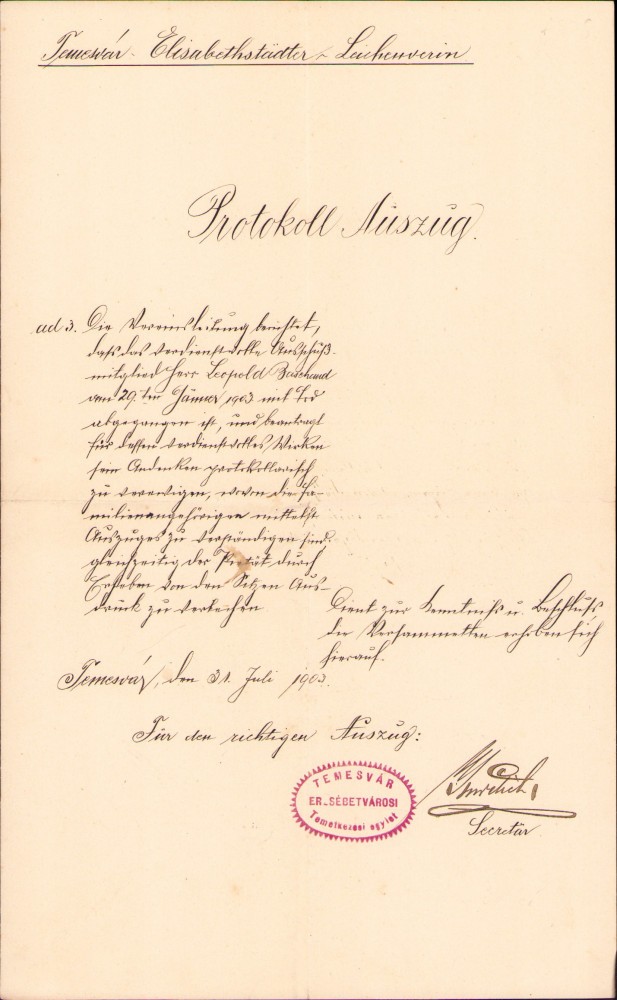 Temesvár - Elisabethstädter - Leichenverin
Protokoll Auszug.
ad 3. Die Vereinsleitung berichtet,
daß das verdienstvolle Ausschuß-
mitglied Herr Leopold
am 29.ten Jänner 1903 mit Tod
abgegangen ist, und beantragt
für dessen verdienstvolles Wirken
sein Andenken protokollarisch
zu verewigen, wovon die Fa-
milienangehörigen mittelst
Auszuges zu verständigen sind,
gleichzeitig der Pietät durch
Erheben von den Sitzen Aus-
druck zu verleihen
Dient zur Kenntniß u. Beschluß
die Versammelten erheben sich
hierauf.
Temesvár, den 31. Juli 1903.
Für den richtigen Auszug:
TEMESVÁR
ER_SÉBETVÁROSI
Temetkezési egylet
Secretär